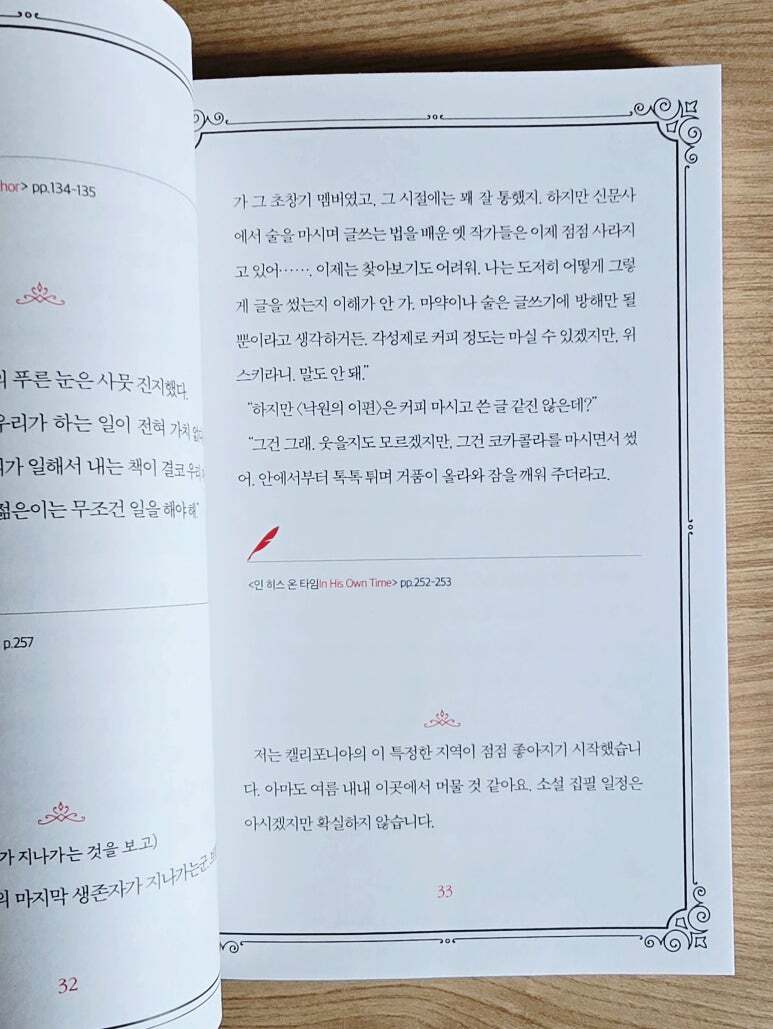 hor> pp.134-135
의 푸른 눈은 사뭇 진지했다.
우리가 하는 일이 전혀 가치 없다
가 일해서 내는 책이 결코 우리
젊은이는 무조건 일을 해야 해"
p.257
가 지나가는 것을 보고)
의 마지막 생존자가 지나가는군
32
가 그 초창기 멤버였고, 그 시절에는 꽤 잘 통했지. 하지만 신문사
에서 술을 마시며 글쓰는 법을 배운 옛 작가들은 이제 점점 사라지
고 있어……. 이제는 찾아보기도 어려워. 나는 도저히 어떻게 그렇
게 글을 썼는지 이해가 안 가. 마약이나 술은 글쓰기에 방해만 될
뿐이라고 생각하거든. 각성제로 커피 정도는 마실 수 있겠지만, 위
스키라니. 말도 안 돼."
"하지만 〈낙원의 이편〉은 커피 마시고 쓴 글 같진 않은데?"
"그건 그래. 웃을지도 모르겠지만, 그건 코카콜라를 마시면서 썼
어. 안에서부터 톡톡 튀며 거품이 올라와 잠을 깨워 주더라고.
<인 히스 온 타임In His Own Time> pp.252-253
저는 캘리포니아의 이 특정한 지역이 점점 좋아지기 시작했습니
다. 아마도 여름 내내 이곳에서 머물 것 같아요. 소설 집필 일정은
아시겠지만 확실하지 않습니다.
33